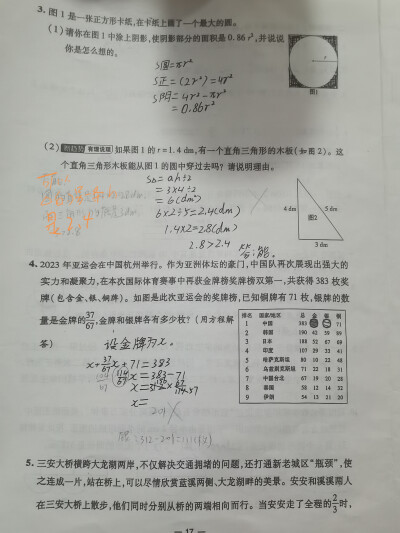 3. 图1是一张正方形卡纸,在卡纸上画了一个最大的圆。
(1)请你在图1中涂上阴影,使阴影部分的面积是0.86r²,并说说
你是怎么想的。
S圆=πr²
S正=(2r²)=4r²
S阴=4r²-πr²
=0.86r²
r
图1
(2) 新趋势 看谁说理 如果图1的r=1.4 dm,有一个直角三角形的木板(如图2)。这
个直角三角形木板能从图1的圆中穿过去吗?请说明理由。
S△=ah÷2
=3×4÷2
=6(dm)
6×2÷5=2.4(dm)
1.4×2=2.8(dm)
2.8>2.4
答:能。
4 dm
5 dm
图2
3 dm
4. 2023年亚运会在中国杭州举行。作为亚洲体坛的豪门,中国队再次展现出强大的
实力和凝聚力,在本次国际体育赛事中再获金牌榜奖牌榜双第一,共获得383枚奖
牌(包含金、银、铜牌)。如图是此次亚运会的奖牌榜,已知铜牌有71枚,银牌的数
量是金牌的37/67,金牌和银牌各有多少枚?(用方程解
答)
排名 国家/地区 总 金 银 铜
1 中国 383 71
2 韩国 190 42 59 89
3 日本 188 52 67 69
4 印度 107 29 33 41
5 哈萨克斯坦 80 10 22 48
6 乌兹别克斯坦 71 22 18 31
7 中国台北 67 19 20 28
8 泰国 58 12 14 32
9 伊朗 54 13 21 20
设金牌为x。
x+37/67x+71=383
x=
201
5. 三安大桥横跨大龙湖两岸,不仅解决交通拥堵的问题,还打通新老城区“瓶颈”,使
之连成一片,站在桥上,可以尽情欣赏蓝溪两侧、大龙湖畔的美景。安安和溪溪两人
在三安大桥上散步,他们同时分别从桥的两端相向而行。当安安走了全程的2/3时,
— 17 —